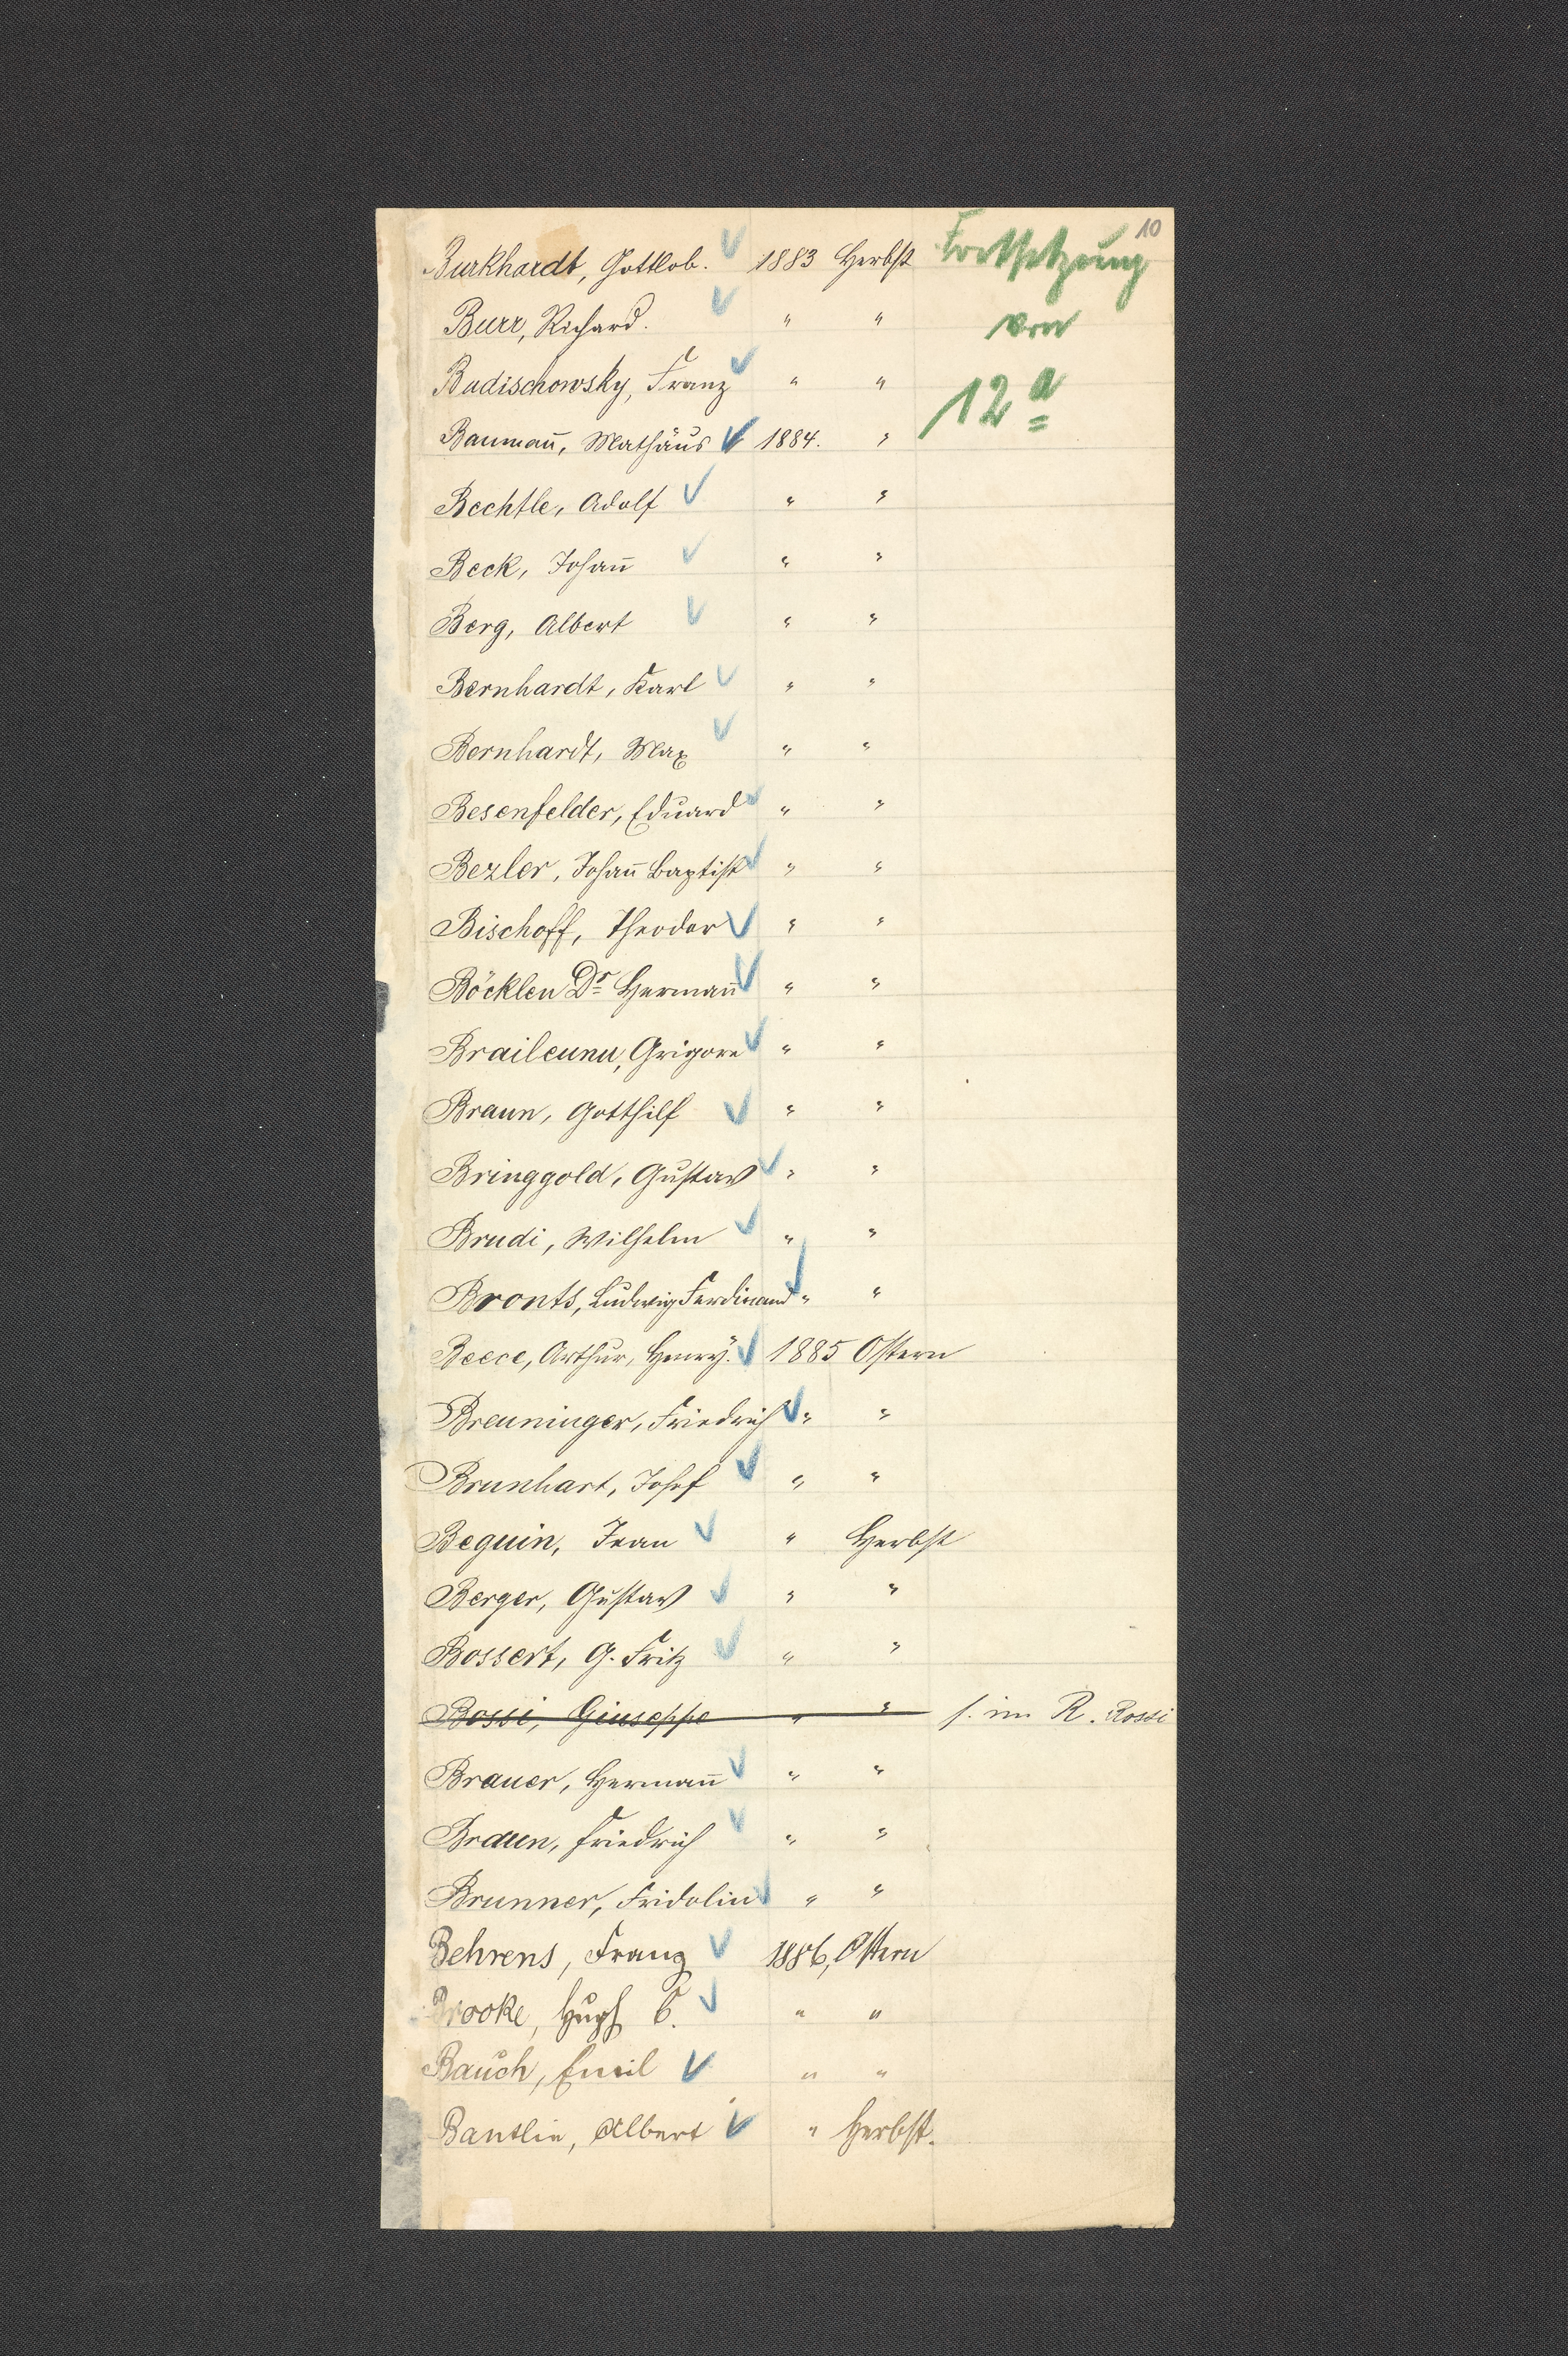 10
Burkhardt, Gottlob. 1883 Herbst Fortsetzung
Burr, Richard. " " von
Badischowsky, Franz " " 12 a
Baumañ, Mathäus 1884. "
Bechtle, Adolf " "
Beck, Johañ " "
Berg, Albert " "
Bernhardt, Karl " "
Bernhardt, Max " "
Besenfelder, Eduard " "
Bezler, Johañ Baptist " "
Bischoff, Theodor " "
Böcklen Dr Hermañ " "
Braileunu, Grigore " "
Braun, Gotthilf " "
Bringgold, Gustav " "
Brudi, Wilhelm " "
Bronts, Ludwig Ferdinand " "
Beece, Arthur, Henry. 1885 Ostern
Breuninger, Friedrich " "
Brunhart, Josef " "
Beguin, Jean " Herbst
Berger, Gustav " "
Bossert, G. Fritz " "
Bossi, Giuseppe " " s. im R. Rossi
Brauer, Hermañ " "
Braun, Friedrich " "
Brunner, Fridolin " "
Behrens, Franz 1886, Ostern
Brooke, Hugh C. " "
Bauch, Emil " "
Bantlin, Albert " Herbst.